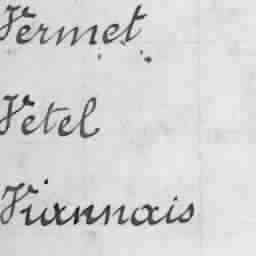 Vermet
Vetel
Viannais